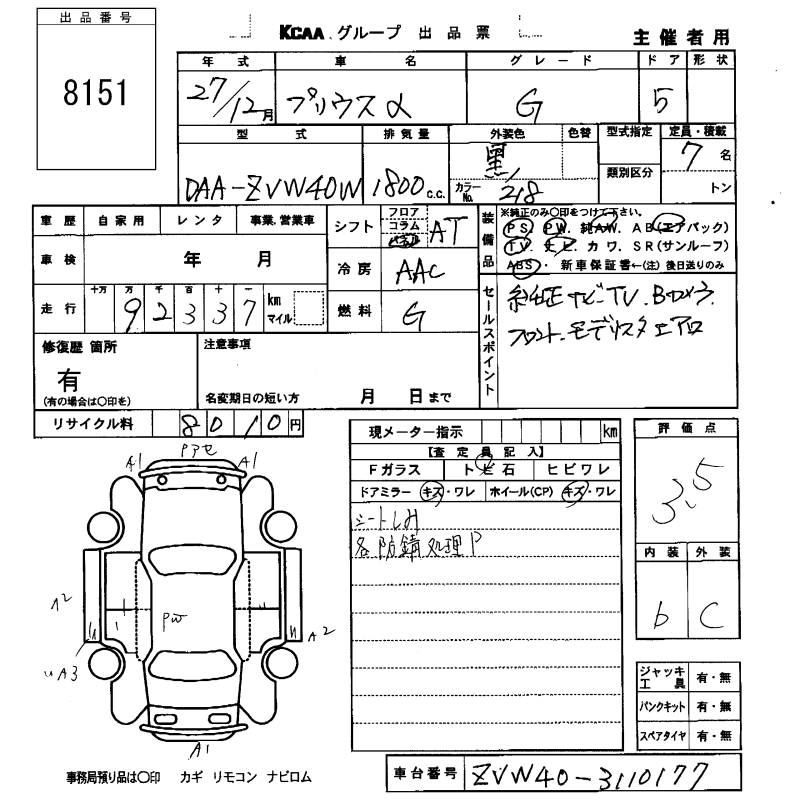 出品番号
8151
KCAA グループ 出品票 主催者用
年式 車名 グレード ドア 形状
27/12月 プリウスα G 5
型式 排気量 外装色 色替 型式指定 定員・積載
DAA-ZVW40W 1800c.c. 黒 7名
カラーNo. 218 類別区分 トン
車歴 自家用 レンタ 事業、営業車
シフト フロア コラム パネル AT
装備品 ※純正のみ〇印をつけて下さい。
PS. PW. 純AW. AB(エアバック)
TV. ナビ. カワ. SR(サンルーフ)
ABS ・ 新車保証書←(注) 後日送りのみ
車検 年 月
冷房 AAC
走行 十万 万 千 百 十 一 km マイル
9 2 3 3 7
燃料 G
セールスポイント
純正ナビ・TV. Bカメラ.
フロント. モデリスタエアロ
修復歴 箇所
有
(有の場合は〇印を)
注意事項
名変期日の短い方 月 日まで
リサイクル料 8 0 1 0 円
現メーター指示 km
【査定員記入】
Fガラス トビ石 ヒビワレ
ドアミラー キズ・ワレ ホイール(CP) キズ・ワレ
シートしみ
各防錆処理P
評価点
3.5
内装 外装
b C
Pアセ
A1 A1
A2
PW
A2
A3
A1
ジャッキ工具 有・無
パンクキット 有・無
スペアタイヤ 有・無
事務局預り品は〇印 カギ リモコン ナビロム
車台番号 ZVW40-3110177